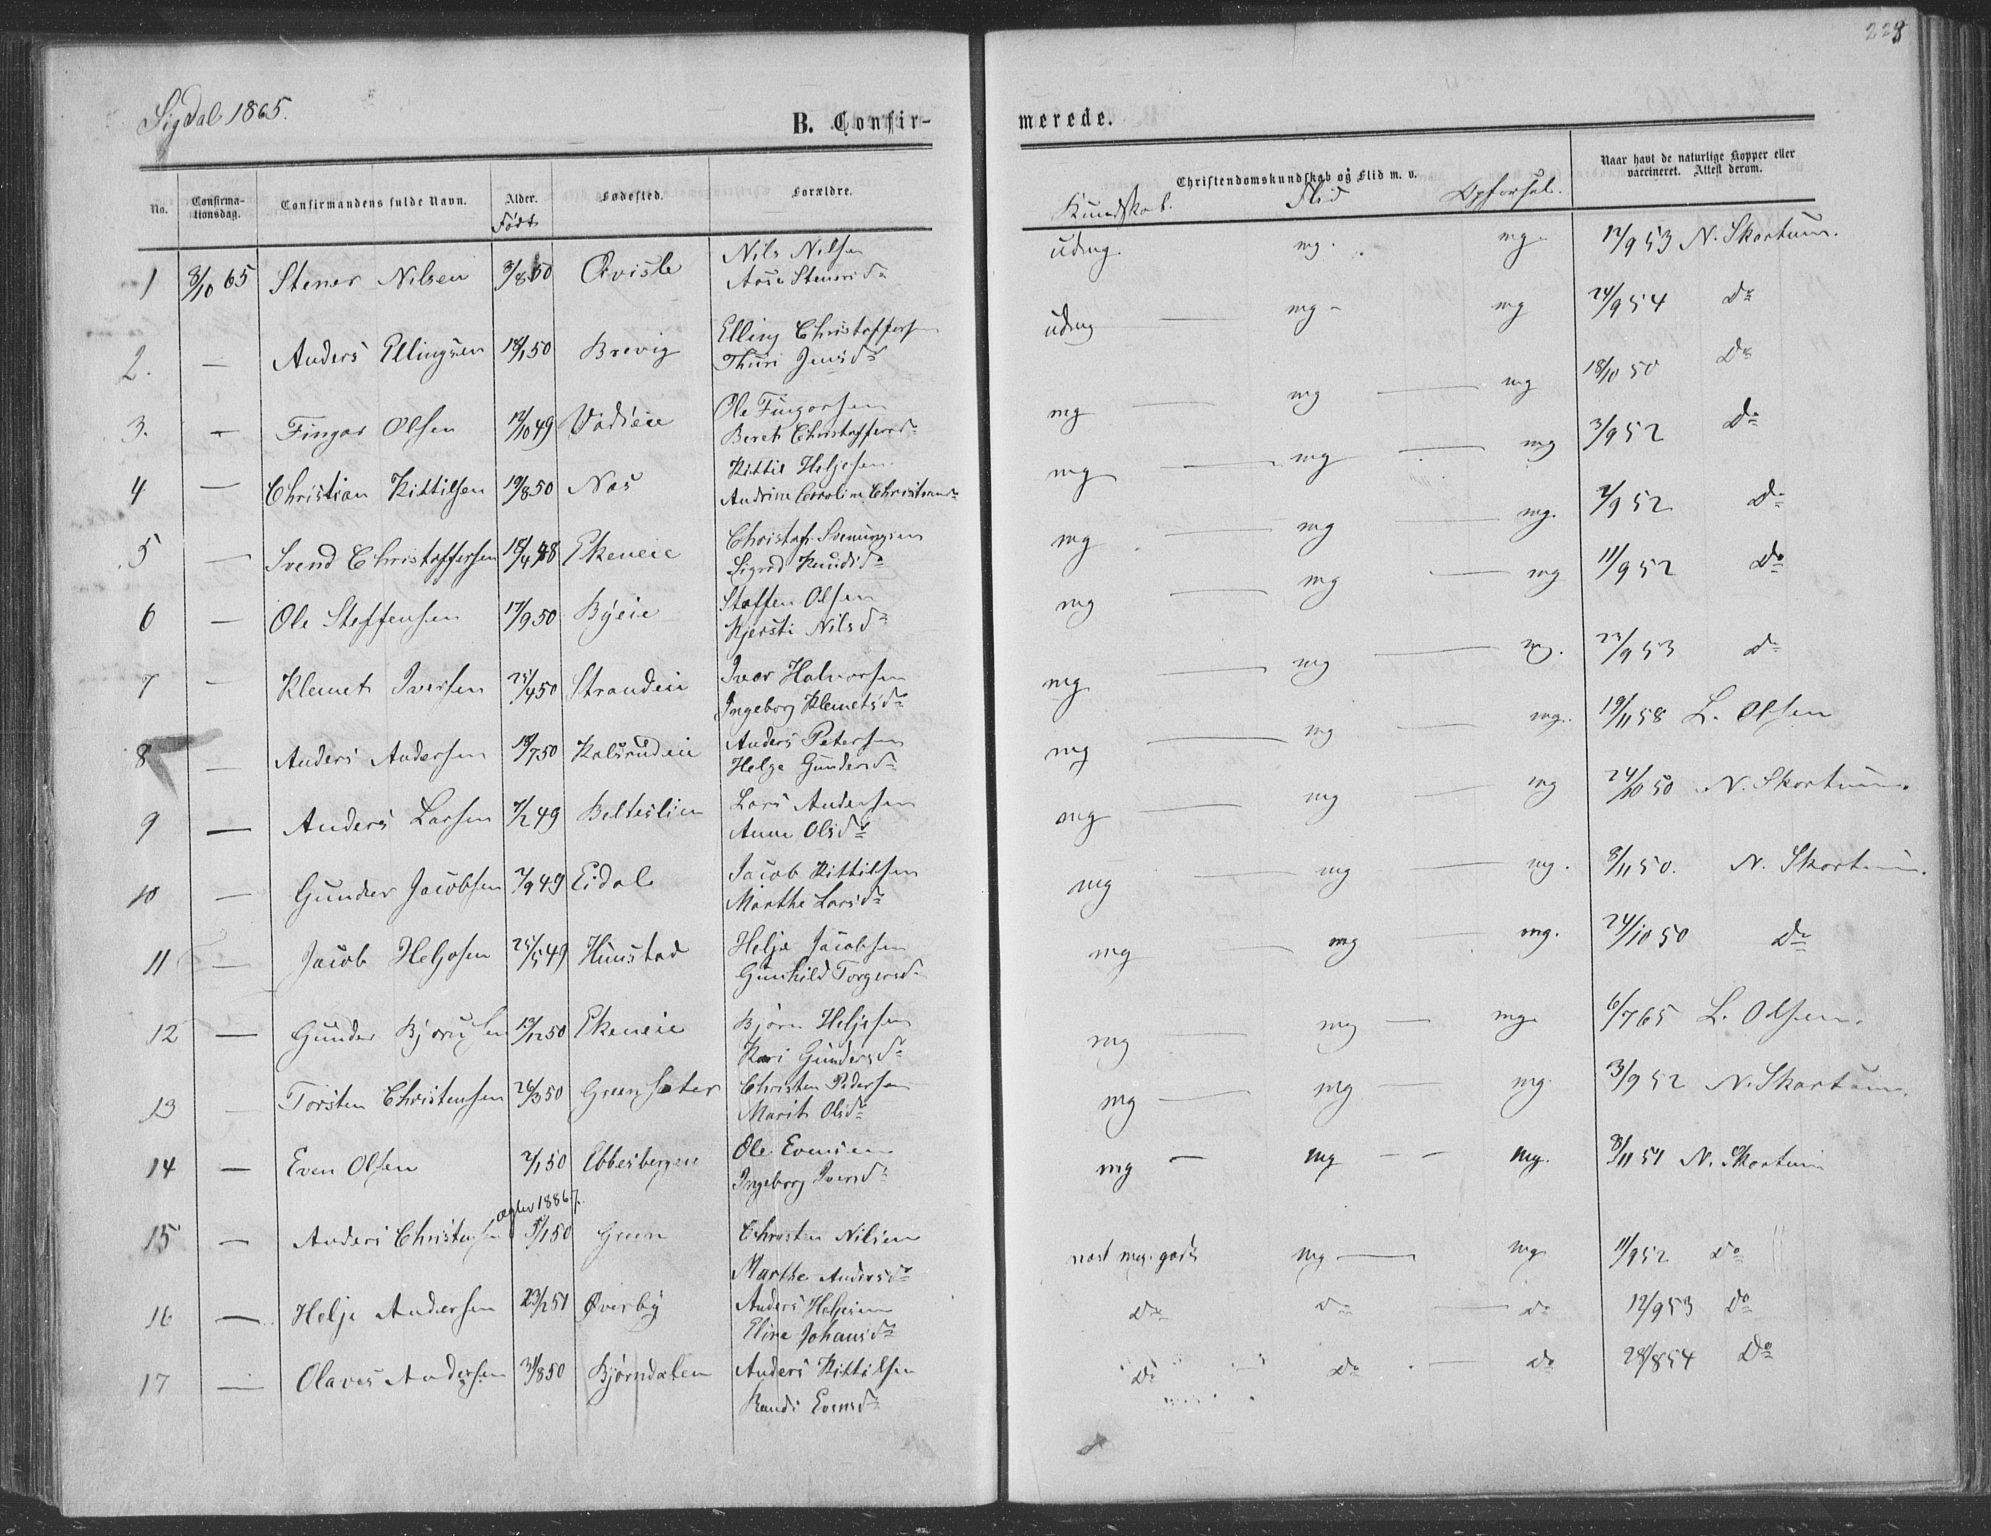 228
Sigdal 1865.
B. Confir-
merede.
No. Confirma-tionsdag. Confirmandens fulde Navn. Alder. Født Fødested. Forældre.
Christendomskundskab og Flid m. v.
Kundskab. Flid Opførsel.
Naar havt de naturlige Kopper eller vaccineret. Attest derom.
1 8/10 65 Stener Nilsen 3/8 50 Nils Nilsen udmg. mg. mg. 12/9 53 N. Skartum.
Aase Stenersd.
2. — Anders Ellingsen 18/1 50 Brevig Elling Christoffersen udmg — mg — mg 24/9 54 Do
Thuri Jensd.
3. — Fingar Olsen 12/10 49 Vadieie Ole Fingarsen mg mg — mg 18/10 50 Do
Beret Christoffersd.
4 — Christian Kittilsen 19/8 50 Nas Kittil Heljesen mg — mg mg 3/9 52 Do
Andrine Caroline Christensd.
5 — Svend Christoffersen 18/4 48 Ekeneie Christof. Svenungsen mg — mg — mg. 2/9 52 Do
Sigrid Knudsd.
6 — Ole Steffensen 17/9 50 Byeie Staffen Olsen mg mg — mg 11/9 52 Do
Kjersti Nilsd.
7 — Klemet Iversen 25/4 50 Strandeie Iver Halvorsen mg — mg — mg. 23/9 53 do
Ingeborg Klemetsd.
8 — Anders Andersen 18/7 50 Kalsrudeie Anders Petersen mg — mg — mg. 19/11 58 L. Olsen
Helge Gundersd.
9 — Anders Larsen 7/2 49 Belteslien Lars Andersen mg — mg — mg 24/10 50 N. Skartum.
Anne Olsd.
10 — Gunder Jacobsen 2/9 49 Eidal Jacob Kittilsen mg mg — mg. 8/11 50. N. Skartum.
Marthe Larsd.
11 — Jacob Heljesen 25/5 49 Hunstad Helje Jacobsen mg — mg — mg. 24/10 50 Do
Gunhild Torgersd.
12 — Gunder Bjørnsen 19/12 50 Ekeneie Bjørn Heljesen mg — mg — mg. 6/7 65 L. Olsen.
Kari Gundersd.
13 — Torsten Christensen 26/3 50 Christen Pedersen mg — mg — mg. 3/9 52 N. Skartum.
Marit Olsd.
14 — Even Olsen 2/1 50 Ebbesbergeie Ole Evensen mg — mg — — mg. 8/11 51 N. Skartum
Ingeborg Iversd.
1886
15 — Anders Christensen 5/1 50 Green Christen Nilsen næst meg. godt mg — mg 11/9 52 Do
Marthe Andersd.
16 — Helje Andersen 23/2 51 Øverby Anders Heljesen Do Do — Do 12/9 53 Do
Eline Johansd.
17 — Olaves Andersen 31/8 50 Bjørndalen Anders Kittilsen Do Do — Do 28/8 54 Do
Randi Evensd.